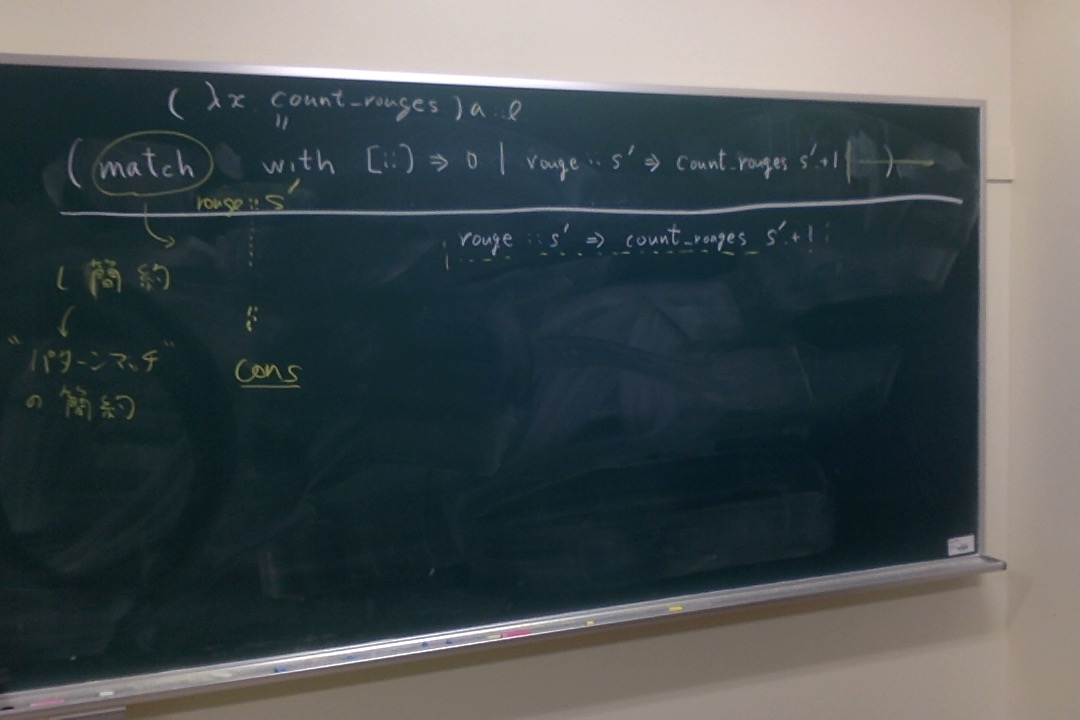 (λx count_rouges) a :: l
"
(match with [::] ⇒ 0 | rouge :: s' ⇒ count_rouges s'.+1 | )
rouge :: s'
rouge :: s' ⇒ count_rouges s'.+1
ι 簡約
::
"パターンマッチ"
cons
の 簡約